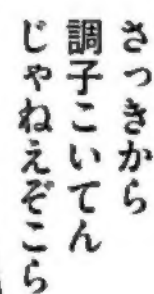 さっきから
調子こいてん
じゃねえぞこら